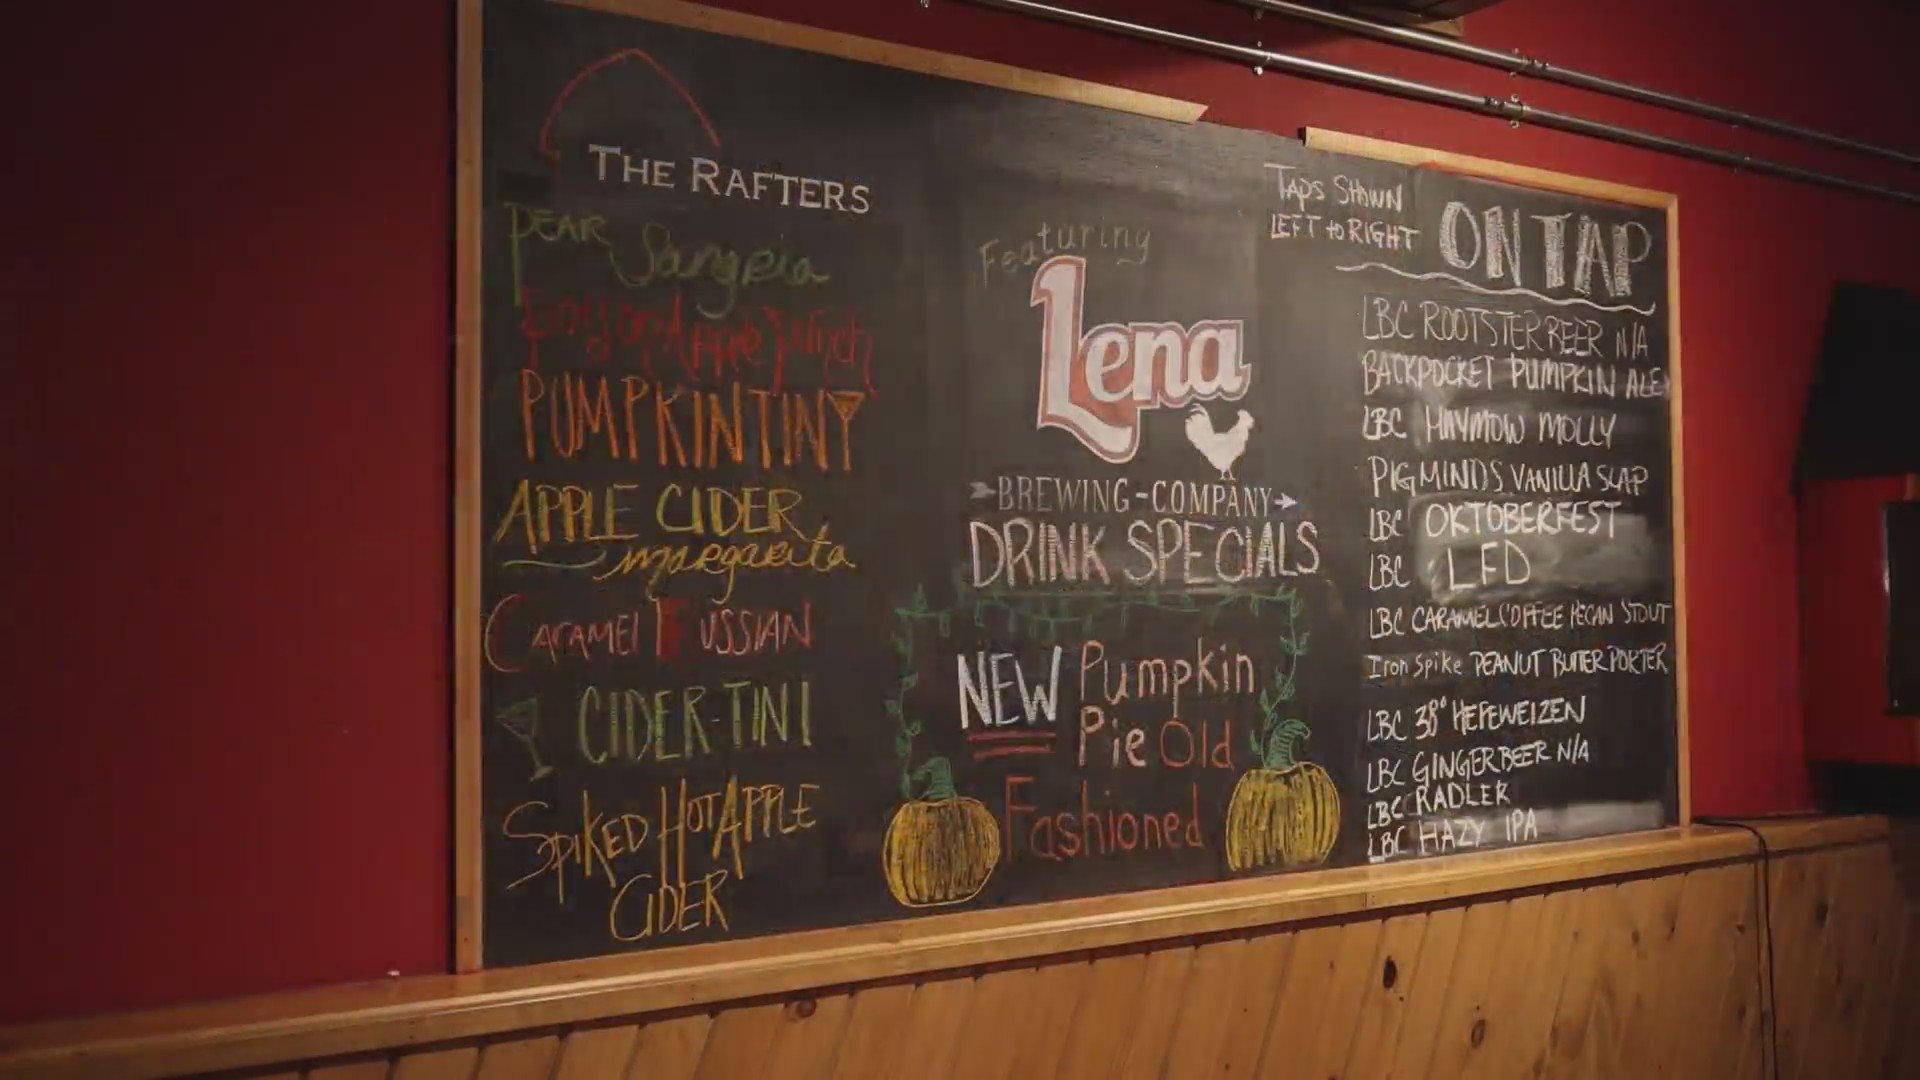 THE RAFTERS
PEAR Sangria
Poison Apple Punch
PUMPKINTINY
APPLE CIDER
margarita
CARAMEL RUSSIAN
CIDER-TINI
SPIKED HOT APPLE
CIDER
Featuring
Lena
BREWING-COMPANY
DRINK SPECIALS
NEW Pumpkin
Pie Old
Fashioned
TAPS SHOWN
LEFT to RIGHT
ON TAP
LBC ROOTSTER BEER N/A
BACKPOCKET PUMPKIN ALE
LBC HAYMOW MOLLY
PIG MINDS VANILLA SLAP
LBC OKTOBERFEST
LBC LFD
LBC CARAMEL COFFEE PECAN STOUT
Iron Spike PEANUT BUTTER PORTER
LBC 38° HEFEWEIZEN
LBC GINGER BEER N/A
LBC RADLER
LBC HAZY IPA